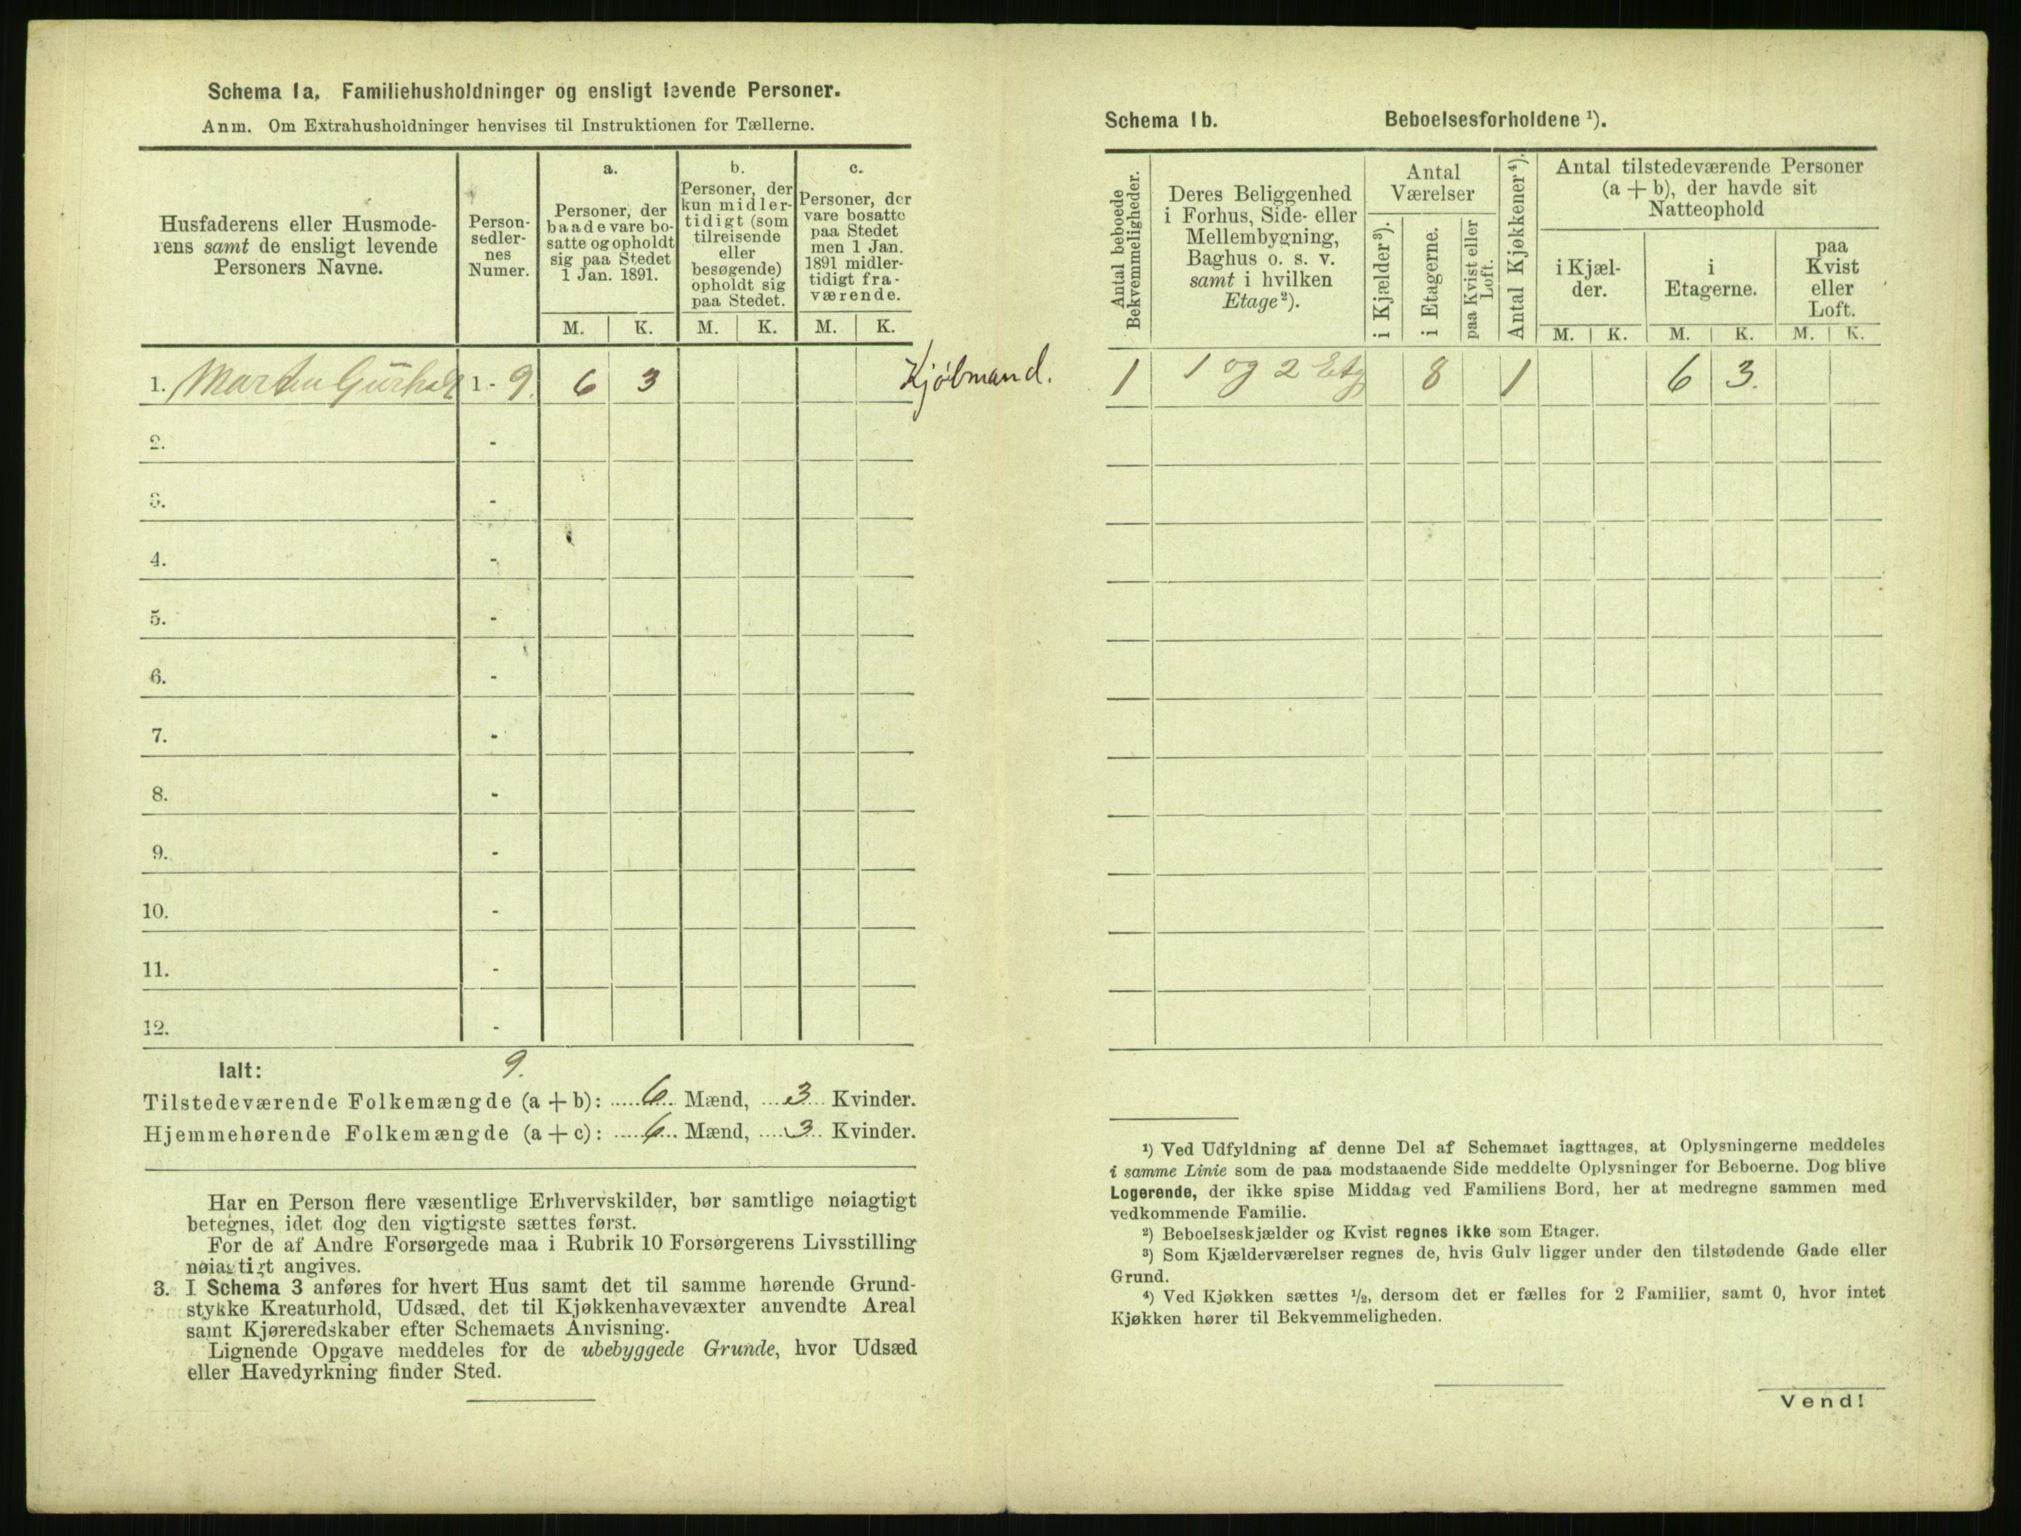 Schema 1a. Familiehusholdninger og ensligt levende Personer.
Anm. Om Extrahusholdninger henvises til Instruktionen for Tællerne.
Husfaderens eller Husmode-
rens samt de ensligt levende
Personers Navne.
Person-
sedler-
nes
Numer.
a.
Personer, der
baade vare bo-
satte og opholdt
sig paa Stedet
1 Jan. 1891.
M. K.
b.
Personer, der
kun midler-
tidigt (som
tilreisende
eller
besøgende)
opholdt sig
paa Stedet.
M. K.
c.
Personer, der
vare bosatte
paa Stedet
men 1 Jan.
1891 midler-
tidigt fra-
værende.
M. K.
1. Martin 1 - 9. 6 3 Kjøbmand.
2. -
3. -
4. -
5. -
6. -
7. -
8. -
9. -
10. -
11. -
12. -
Ialt: 9.
Tilstedeværende Folkemængde (a + b): 6 Mænd, 3 Kvinder.
Hjemmehørende Folkemængde (a + c): 6 Mænd, 3 Kvinder.
Har en Person flere væsentlige Erhvervskilder, bør samtlige nøiagtigt
betegnes, idet dog den vigtigste sættes først.
For de af Andre Forsørgede maa i Rubrik 10 Forsørgerens Livsstilling
nøiagtigt angives.
3. I Schema 3 anføres for hvert Hus samt det til samme hørende Grund-
stykke Kreaturhold, Udsæd, det til Kjøkkenhavevæxter anvendte Areal
samt Kjøreredskaber efter Schemaets Anvisning.
Lignende Opgave meddeles for de ubebyggede Grunde, hvor Udsæd
eller Havedyrkning finder Sted.
Schema 1b. Beboelsesforholdene ¹).
Antal beboede
Bekvemmeligheder.
Deres Beliggenhed
i Forhus, Side- eller
Mellembygning,
Baghus o. s. v.
samt i hvilken
Etage ²).
Antal
Værelser
i Kjælder ³).
i Etagerne.
paa Kvist eller
Loft.
Antal Kjøkkener ⁴).
Antal tilstedeværende Personer
(a + b), der havde sit
Natteophold
i Kjæl-
der.
i
Etagerne.
paa
Kvist
eller
Loft.
M. K. M. K. M. K.
1 1 og 2 Etg 8 1 6 3.
¹) Ved Udfyldning af denne Del af Schemaet iagttages, at Oplysningerne meddeles
i samme Linie som de paa modstaaende Side meddelte Oplysninger for Beboerne. Dog blive
Logerende, der ikke spise Middag ved Familiens Bord, her at medregne sammen med
vedkommende Familie.
²) Beboelseskjælder og Kvist regnes ikke som Etager.
³) Som Kjælderværelser regnes de, hvis Gulv ligger under den tilstødende Gade eller
Grund.
⁴) Ved Kjøkken sættes ½, dersom det er fælles for 2 Familier, samt 0, hvor intet
Kjøkken hører til Bekvemmeligheden.
Vend!